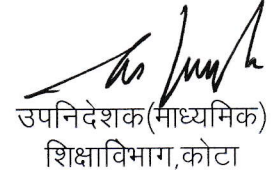 उपनिदेशक(माध्यमिक)
शिक्षाविभाग,कोटा